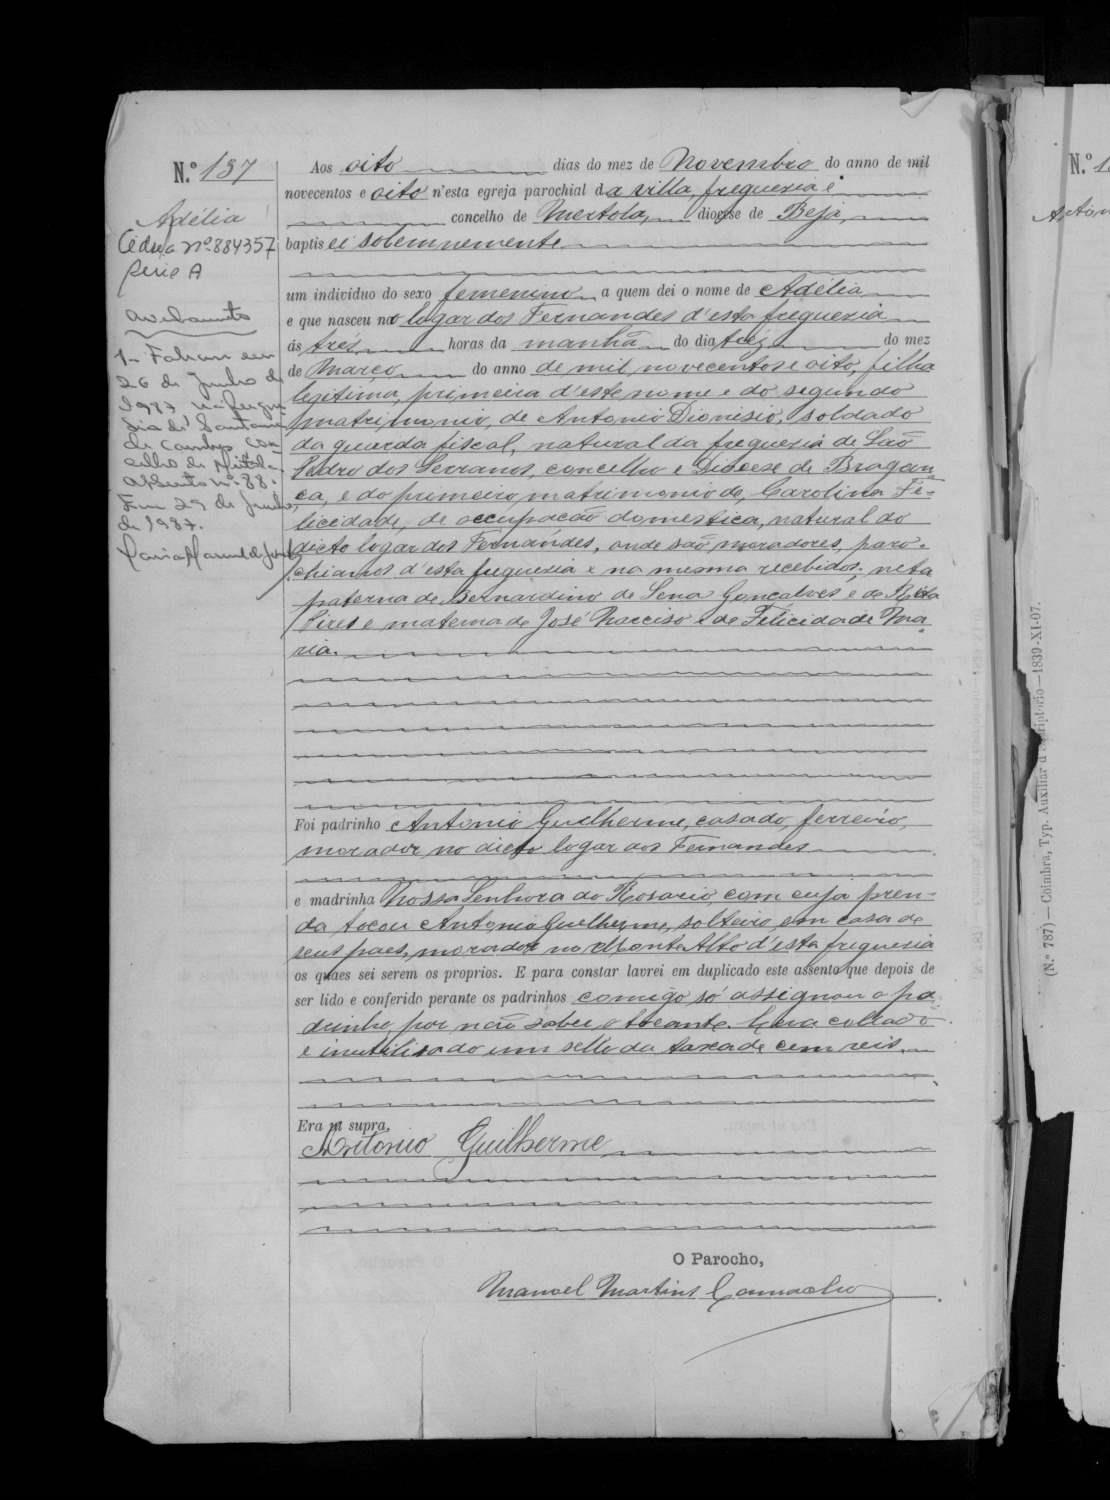 N.º 137
Adélia
Cédula nº 884357
Serie A
Averbamento
1- Faleceu em
26 de Junho de
1987 na fregue
sia de Santana
de Cambas con
celho de Mértola.
Assento nº 88.
Em 29 de Junho
de 1987.
Aos oito dias do mez de Novembro do anno de mil
novecentos e oito n'esta egreja parochial da villa, freguezia e
concelho de Mertola, diocese de Beja,
baptisei solemnemente
um individuo do sexo femenino a quem dei o nome de Adélia
e que nasceu no logar dos Fernandes d'esta freguezia
ás três horas da manhã do dia trez do mez
de Março do anno de mil novecentos e oito, filha
legitima, primeira d'este nome e do segundo
matrimonio, de Antonio Dionisio, soldado
da guarda fiscal, natural da freguezia de São
Pedro dos Serranos, concelho e Diocese de Bragan
ça, e do primeiro matrimonio de, Carolina Fe-
licidade, de occupacão domestica, natural do
dicto logar dos Fernandes, onde são moradores, paro-
chianos d'esta freguezia e na mesma recebidos; neta
paterna de Bernardino de Sena Gonçalves e de Rita
Pires e materna de José Narciso e de Felicidade Ma
ria.
Foi padrinho Antonio Guilherme, casado, ferreiro,
morador no dicto logar dos Fernandes
e madrinha Nossa Senhora do Rosario, com cuja pren-
da tocou Antonio Guilherme, solteiro, em casa de
seus paes, morador no Monte Alto d'esta freguezia
os quaes sei serem os proprios. E para constar lavrei em duplicado este assento que depois de
ser lido e conferido perante os padrinhos comigo só assignou o pa
drinho, por não saber o tocante. Leva collado
e inutilisado um sello da taxa de cem reis.
Era ut supra,
Antonio Guilherme
O Parocho,
Manoel Martins Camacho
(N.º 787)—Coimbra, Typ. Auxiliar d'Escriptorio—1839-XI-07.
N.º 1